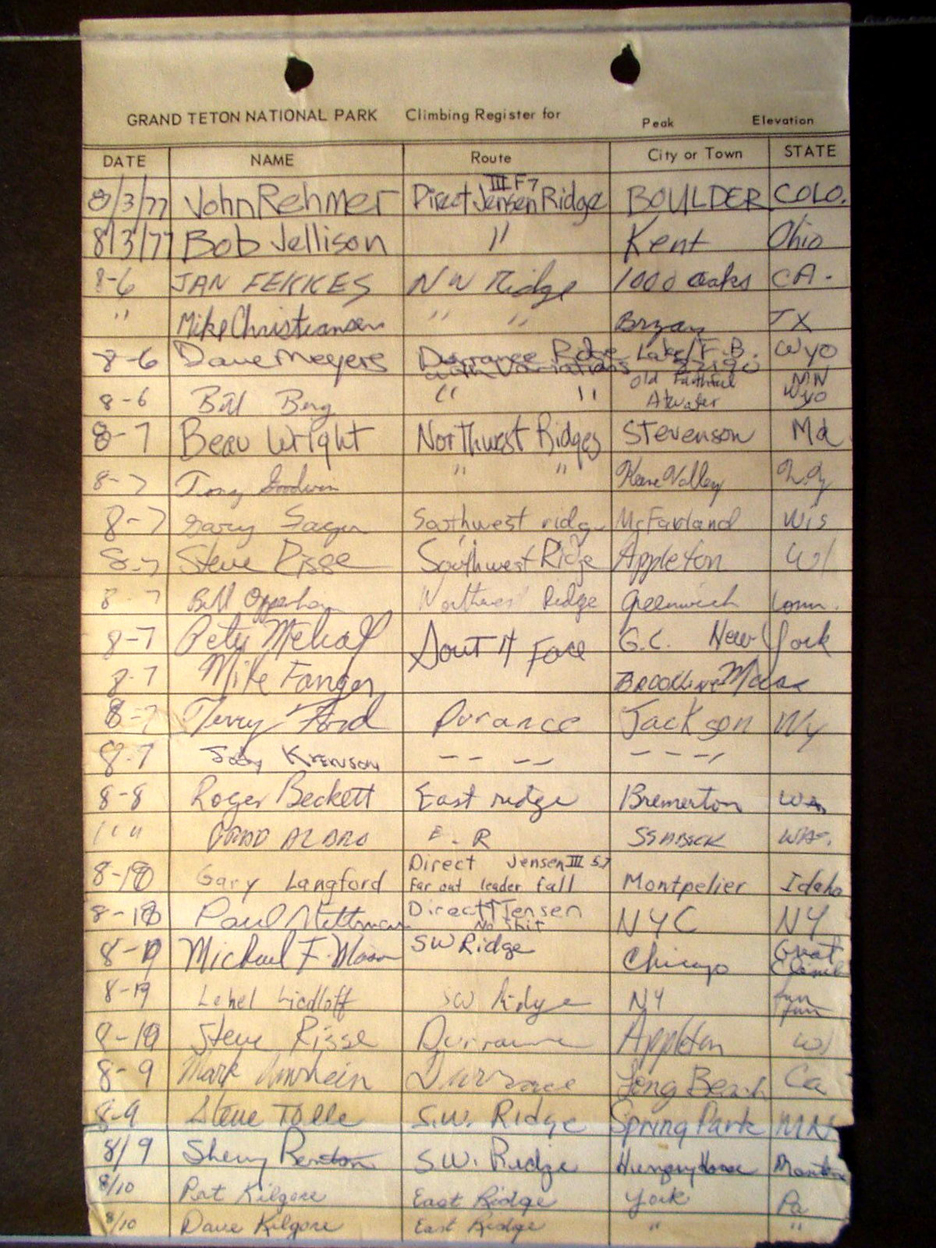 GRAND TETON NATIONAL PARK Climbing Register for Peak Elevation
DATE NAME Route City or Town STATE
8/3/77 John Rehmer Direct Jensen Ridge III F7 BOULDER COLO.
8/3/77 Bob Jellison " Kent Ohio
8-6 JAN FEKKES NW Ridge 1000 oaks CA.
" Mike Christiansen " " Bryan TX
8-6 Dave Meyers Durrance Ridge with Variations Lake/F.B. Wyo
8-6 Bill Berg " " Old Faithful Atwater MN Wyo
8-7 Beau Wright Northwest Ridges Stevenson Md
8-7 Tony Goodwin " " Keene Valley N.Y
8-7 Gary Southwest ridge McFarland Wis
8-7 Steve Risse Southwest Ridge Appleton WI
8-7 Bill Northwest Ridge Greenwich Conn.
8-7 Pety Metcalf South Face G.C. New York
8-7 Mike Fanger Brookline Mass
8-7 Terry Ford Durance Jackson Wy
8-7 Krenson -- -- -- --
8-8 Roger Beckett East ridge Bremerton WA
" " E. R
8-10 Gary Langford Direct Jensen III 5.7 Far out leader fall Montpelier Idaho
8-10 Paul Direct Jensen No shit NYC NY
8-9 Michael F. SW Ridge Chicago Great Climb
8-9 Lehel SW Ridge NY fun fun
8-10 Steve Risse Durrance Appleton WI
8-9 Mark Durrance Long Beach Ca
8-9 Steve Tolle S.W. Ridge Spring Park MN
8/9 Sherry S.W. Ridge Hungry Horse Montana
8/10 Pat Kilgore East Ridge York Pa
8/10 Dave Kilgore East Ridge " "